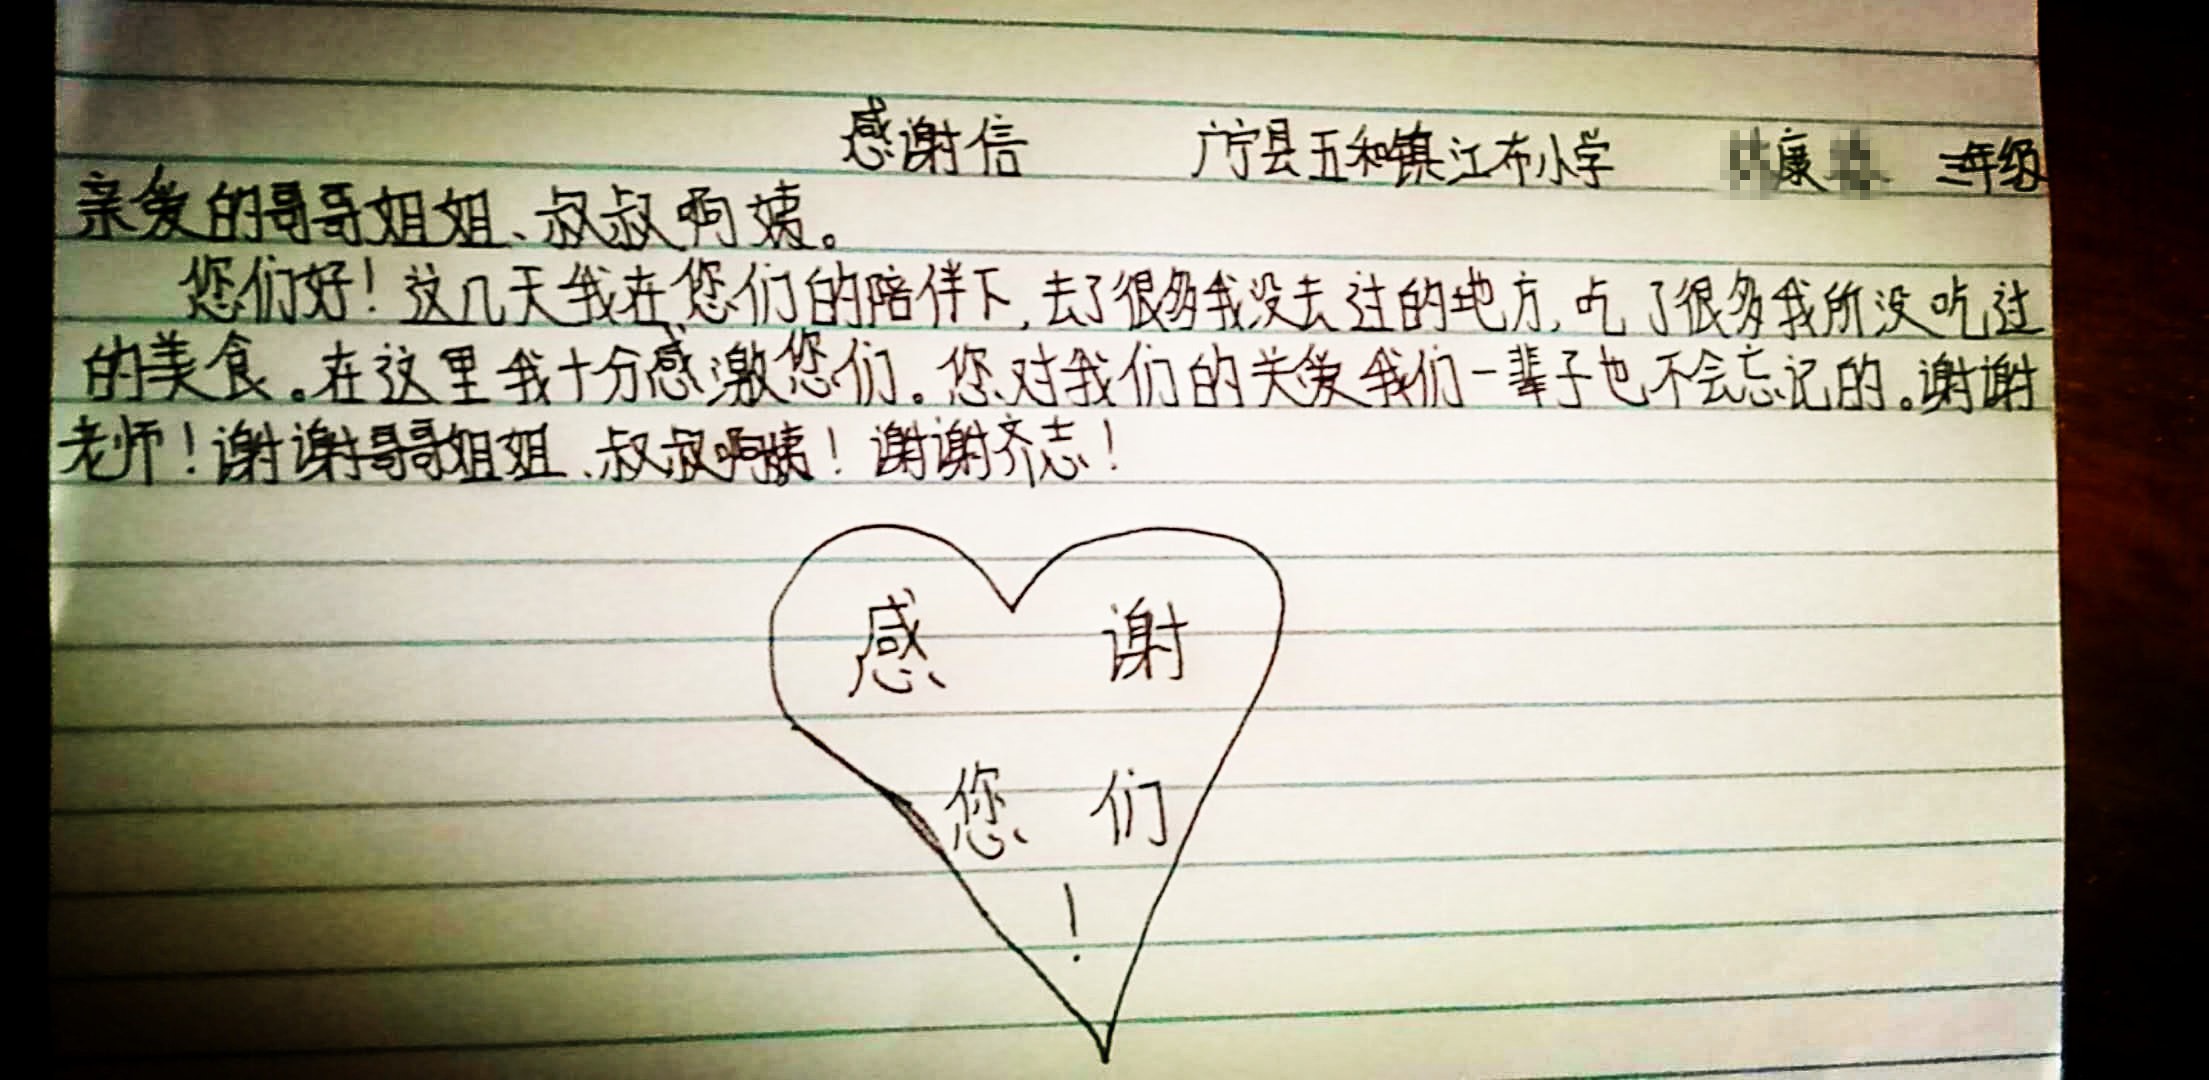 感谢信 广宁县五和镇江布小学 康 三年级
亲爱的哥哥姐姐、叔叔啊姨。
您们好！这几天我在您们的陪伴下，去了很多我没去过的地方，吃了很多我所没吃过
的美食。在这里我十分感激您们。您对我们的关爱我们一辈子也不会忘记的。谢谢
老师！谢谢哥哥姐姐、叔叔啊姨！谢谢齐志！
感谢
您们
！